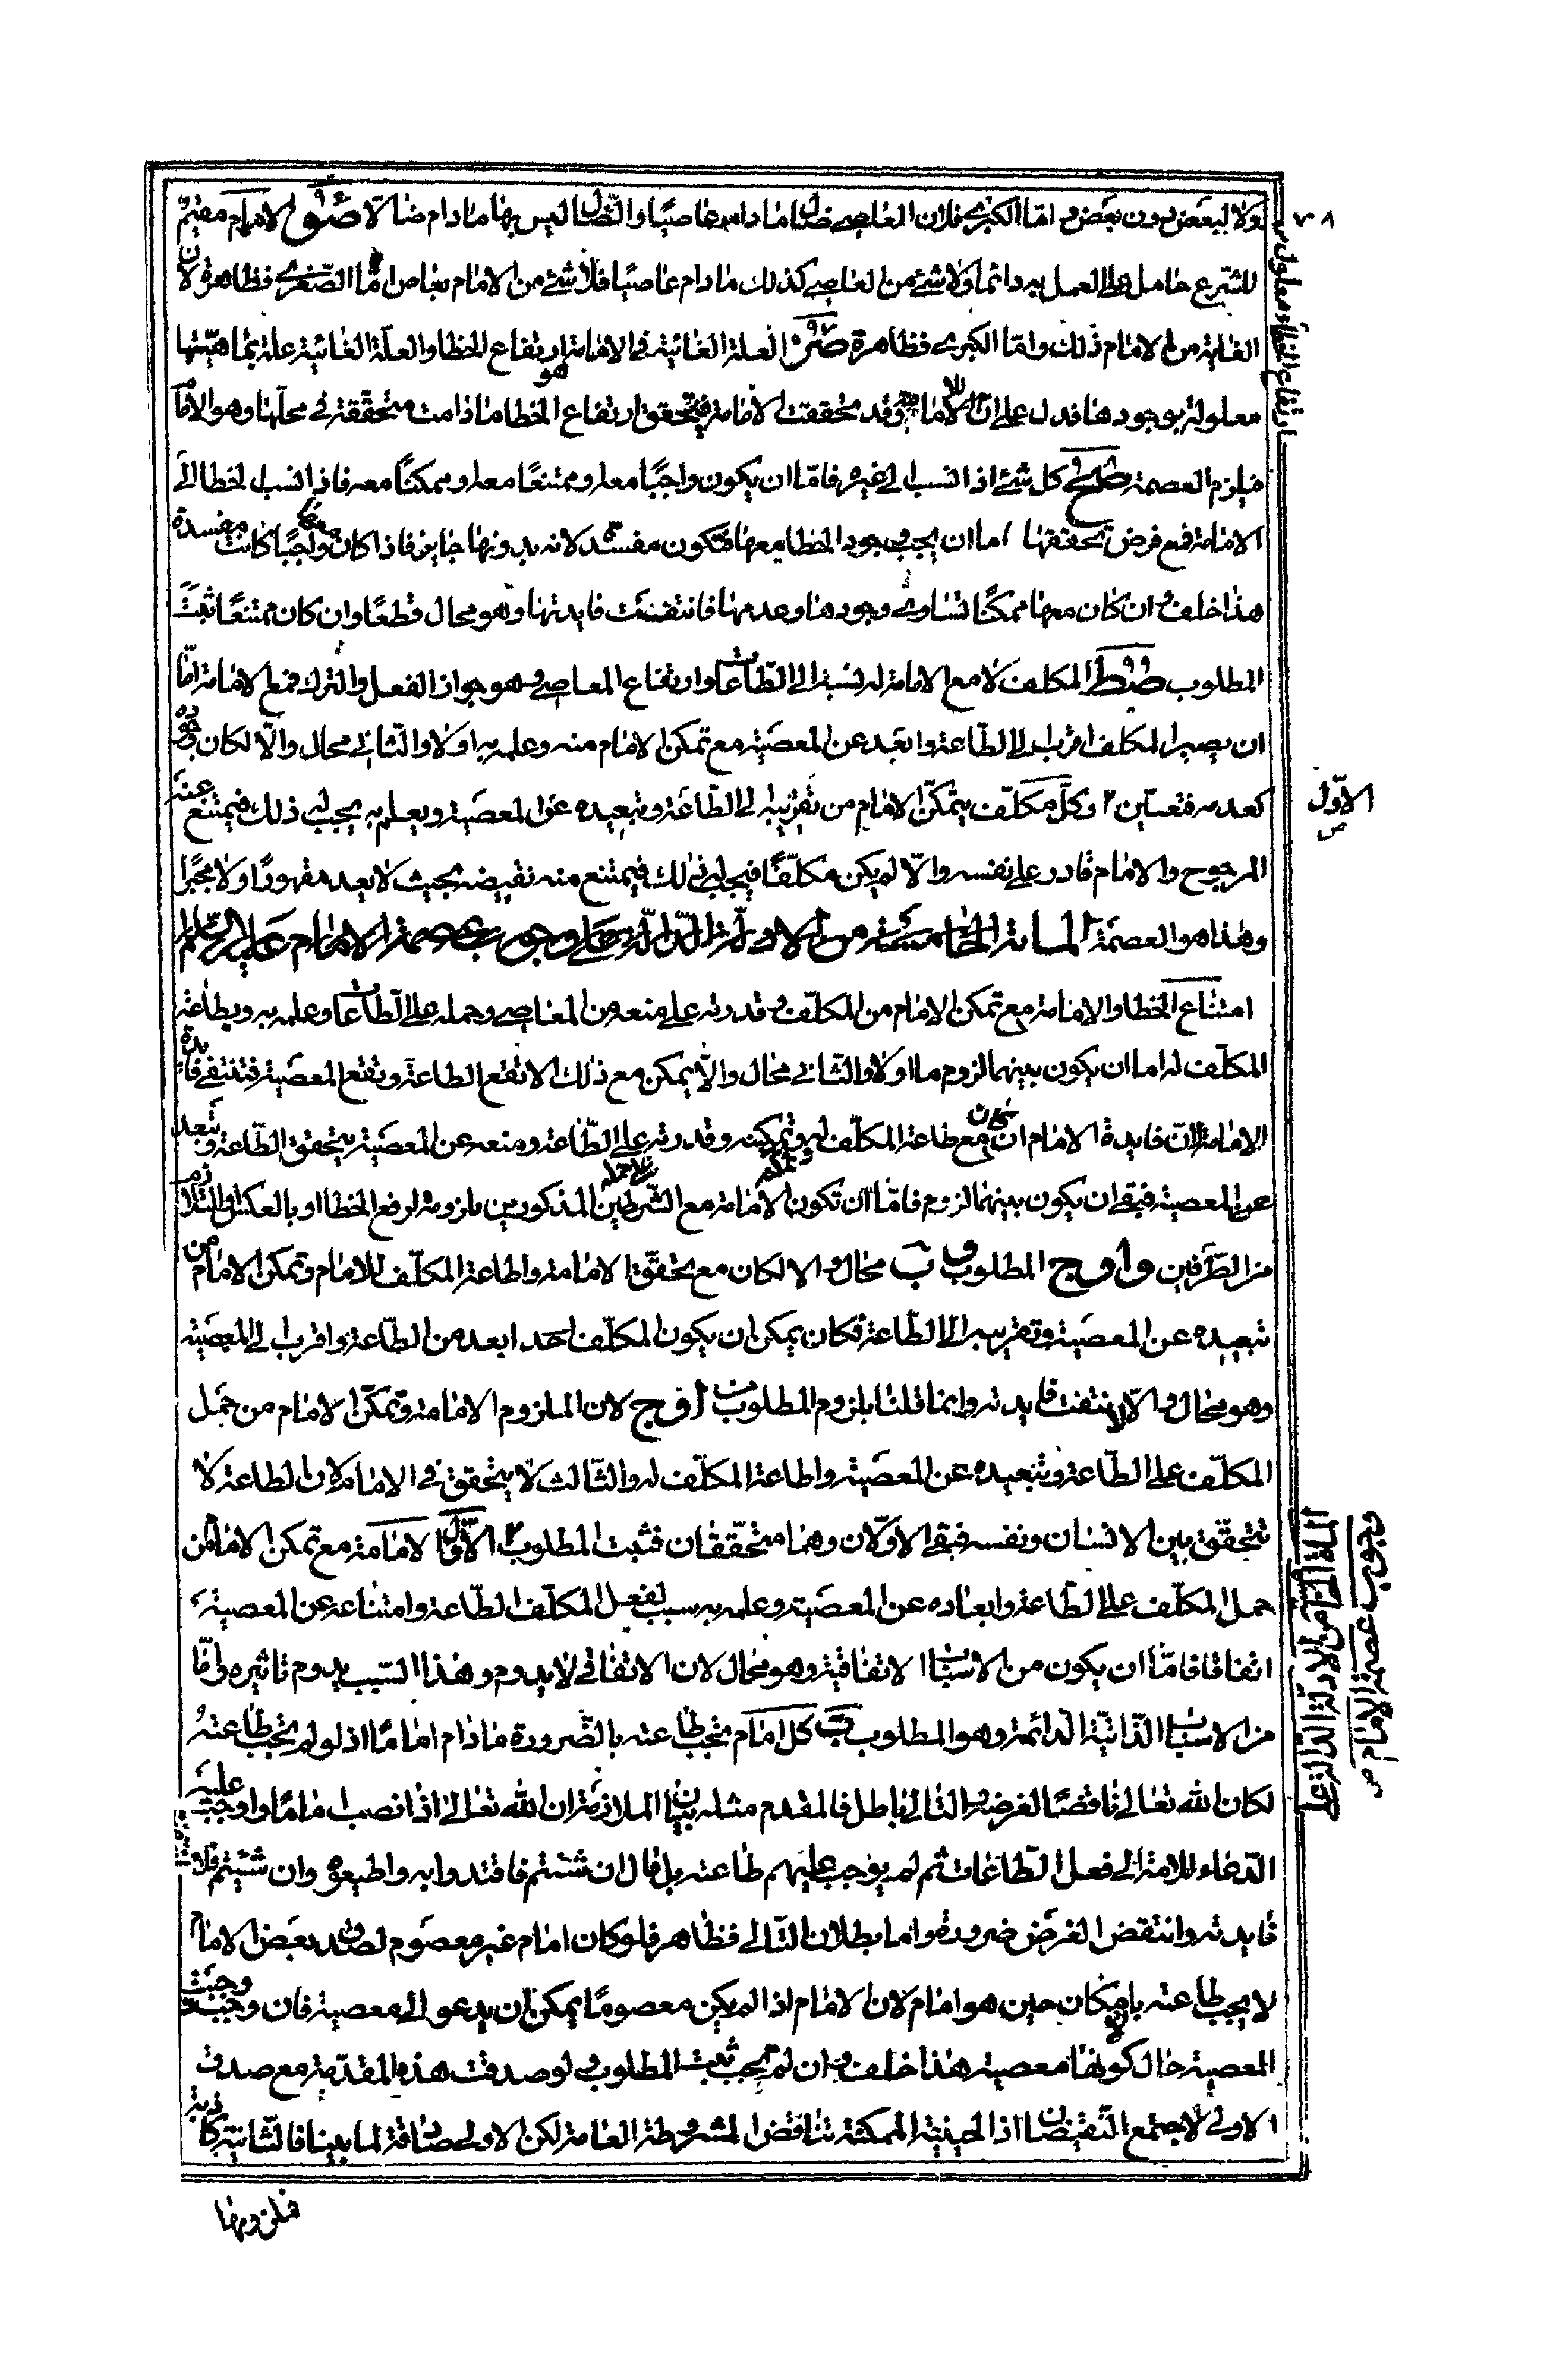 ٧٨
ولا لبعض دون بعض و اما الكبرى فلان العاصى ضال ما دام عاصيا والضال ليس بهاد ما دام ضالا صو الامام مقيم
للشرع حامل على العمل به دائما ولا شئ من العاصى كذلك ما دام عاصيا فلا شئ من الامام بعاص اما الصغرى فظاهرة لان
الغاية من الامام ذلك واما الكبرى فظاهرة صز العلة الغائية فى الامامة ارتفاع الخطا والعلة الغائية علة بماهيتها
معلولة بوجودها فدل على ان وقد تحققت الامامة فيتحقق ارتفاع الخطا ما دامت متحققة فى محلها وهو الامام
فيلزم العصمة صح كل شئ اذا نسب الى غيره فاما ان يكون واجبا معه او ممتنعا معه او ممكنا معه فاذا نسب الخطا الى
الامامة فمع فرض تحققها اما ان يجب وجود الخطا معها فتكون مفسدة لانه بدونها جايز فاذا كان معها واجبا كانت مفسدة
هذا خلف و ان كان معها ممكنا تساوى وجودها وعدمها فانتفت فايدتها وهو محال قطعا وان كان ممتنعا ثبت
المطلوب صط المكلف لا مع الامامة له نسبة الى الطاعات وارتفاع المعاصى وهو جواز الفعل والترك فمع الامامة اما
ان يصير المكلف اقرب الى الطاعة وابعد عن المعصية مع تمكن الامام منه وعلمه به اولا والثانى محال والا لكان وجوده
كعدمه فتعين ا وكل مكلف يتمكن الامام من تقريبه الى الطاعة وتبعيده عن المعصية ويعلم به يجب له ذلك فيمتنع عنه
المرجوح والامام قادر على نفسه والا لم يكن مكلفا فيجب له ذلك فيمتنع منه نقيضه بحيث لا يعد مقهورا ولا مجبرا
وهذا هو العصمة المائة الخامسة من الادلة الدالة على وجوب عصمة الامام عليه السلام
ا امتناع الخطا والامامة مع تمكن الامام من المكلف و قدرته على منعه من المعاصى وحمله على الطاعات وعلمه به وبطاعة
المكلف له اما ان يكون بينهما لزوم ما اولا والثانى محال والا يمكن مع ذلك الا تقع الطاعة وتقع المعصية فتنتفى فايدة
الامامة لان فايدة الامام ان كان مع طاعة المكلف له و تمكينه وقدرته على الطاعة ومنعه عن المعصية يتحقق الطاعة وتبعد
عن المعصية فبقى ان يكون بينهما لزوم فاما ان تكون الامامة مع الشرطين المذكورين ملزومة لرفع الخطا او بالعكس او التلازم
من الطرفين وا وج المطلوب و ب محال و الا لكان مع تحقق الامامة واطاعة المكلف للامام وتمكن الامام من
تبعيده عن المعصية وتقريبه الى الطاعة فكان يمكن ان يكون المكلف احد ابعد من الطاعة واقرب الى المعصية
وهو محال و الا لانتفت فايدته وانما قلنا بلزوم المطلوب من ا و ج لان الملزوم الامامة وتمكن الامام من حمل
المكلف على الطاعة وتبعيده عن المعصية واطاعة المكلف له والثالث لا يتحقق فى الامام لان الطاعة لا
تتحقق بين الانسان ونفسه فبقى الاولان وهما متحققان فثبت المطلوب الاول الامامة مع تمكن الامام من
حمل المكلف على الطاعة وابعاده عن المعصية وعلمه به سبب لفعل المكلف الطاعة وامتناعه عن المعصية
اتفاقا فاما ان يكون من الاسباب الاتفاقية وهو محال لان الاتفاقى لا يدوم وهذا السبب يدوم تاثيره واما
من الاسباب الذاتية الدائمة وهو المطلوب ب كل امام يجب طاعته بالضرورة ما دام اماما اذ لو لم يجب طاعته
لكان الله تعالى ناقضا لغرضه و التالى باطل فالمقدم مثله بيان الملازمة ان الله تعالى اذا نصب اماما واوجب عليه
الدعاء للامة الى فعل الطاعات ثم لم يوجب عليهم طاعته بل قال ان شئتم فاقتدوا به واطيعوه وان شئتم فلا
فايدته وانتقض الغرض ضرورة واما بطلان التالى فظاهر فلو كان امام غير معصوم لصدق بعض الامام
لا يجب طاعته بامكان حين هو امام لان الامام اذا لم يكن معصوما يمكن ان يدعو الى معصية فان وجبت وجبت
المعصية حال كونها معصية هذا خلف و ان لم يجب ثبت المطلوب و لو صدقت هذه المقدمة مع صدق
الاولى لاجتمع النقيضان اذ الحينية الممكنة تناقض المشروطة العامة لكن الاولى صادقة لما بينا فالثانية كاذبة
فلزومها
ارتفاع الخطأ معلول ص
الاول
ص
المائة الخامس من الادلة الدالة على
وجوب عصمة الامام ص